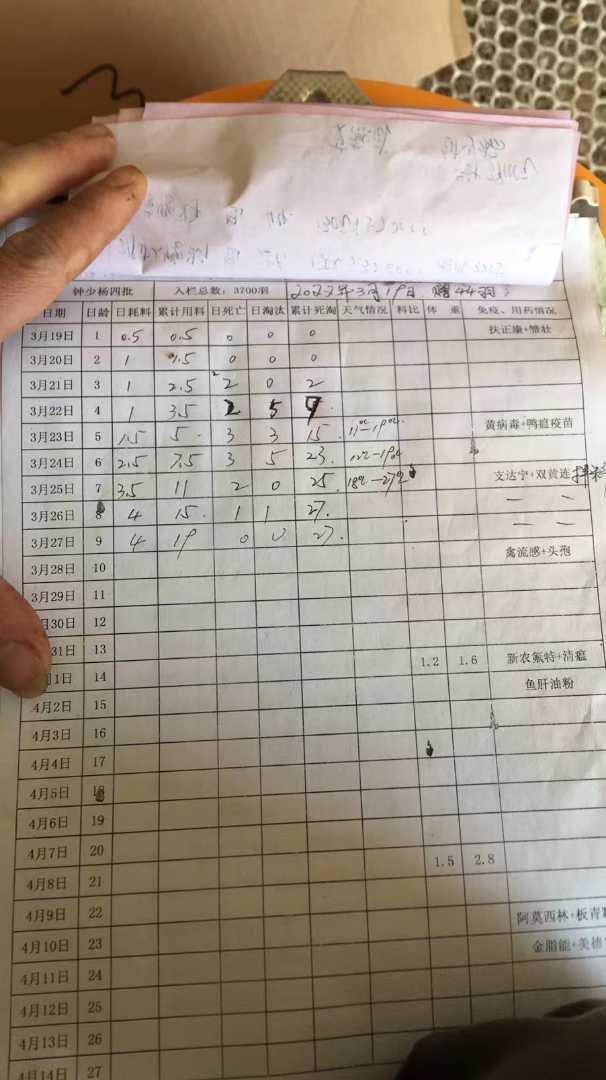 3
钟少杨四批 入栏总数：3700羽 2022年3月19日 赠44羽
日期 日龄 日耗料 累计用料 日死亡 日淘汰 累计死淘 天气情况 料比 体 重 免疫、用药情况
3月19日 1 0.5 0.5 0 0 0 扶正康+雏壮
3月20日 2 1 1.5 0 0 0
3月21日 3 1 2.5 2 0 2
3月22日 4 1 3.5 2 5 9
3月23日 5 1.5 5 3 3 15 11℃-19℃ 黄病毒+鸭瘟疫苗
3月24日 6 2.5 7.5 3 5 23 12℃-19℃
3月25日 7 3.5 11 2 0 25 18℃-27℃ 文达宁+双黄连
3月26日 8 4 15 1 1 27 — —
3月27日 9 4 19 0 0 27 — —
3月28日 10 禽流感+头孢
3月29日 11
月30日 12
31日 13 1.2 1.6 新农氟特+清瘟
月1日 14 鱼肝油粉
4月2日 15
4月3日 16
4月4日 17
4月5日 18
4月6日 19
4月7日 20 1.5 2.8
4月8日 21
4月9日 22 阿莫西林+板青
4月10日 23 金脂能+美德
4月11日 24
4月12日 25
4月13日 26
4月14日 27